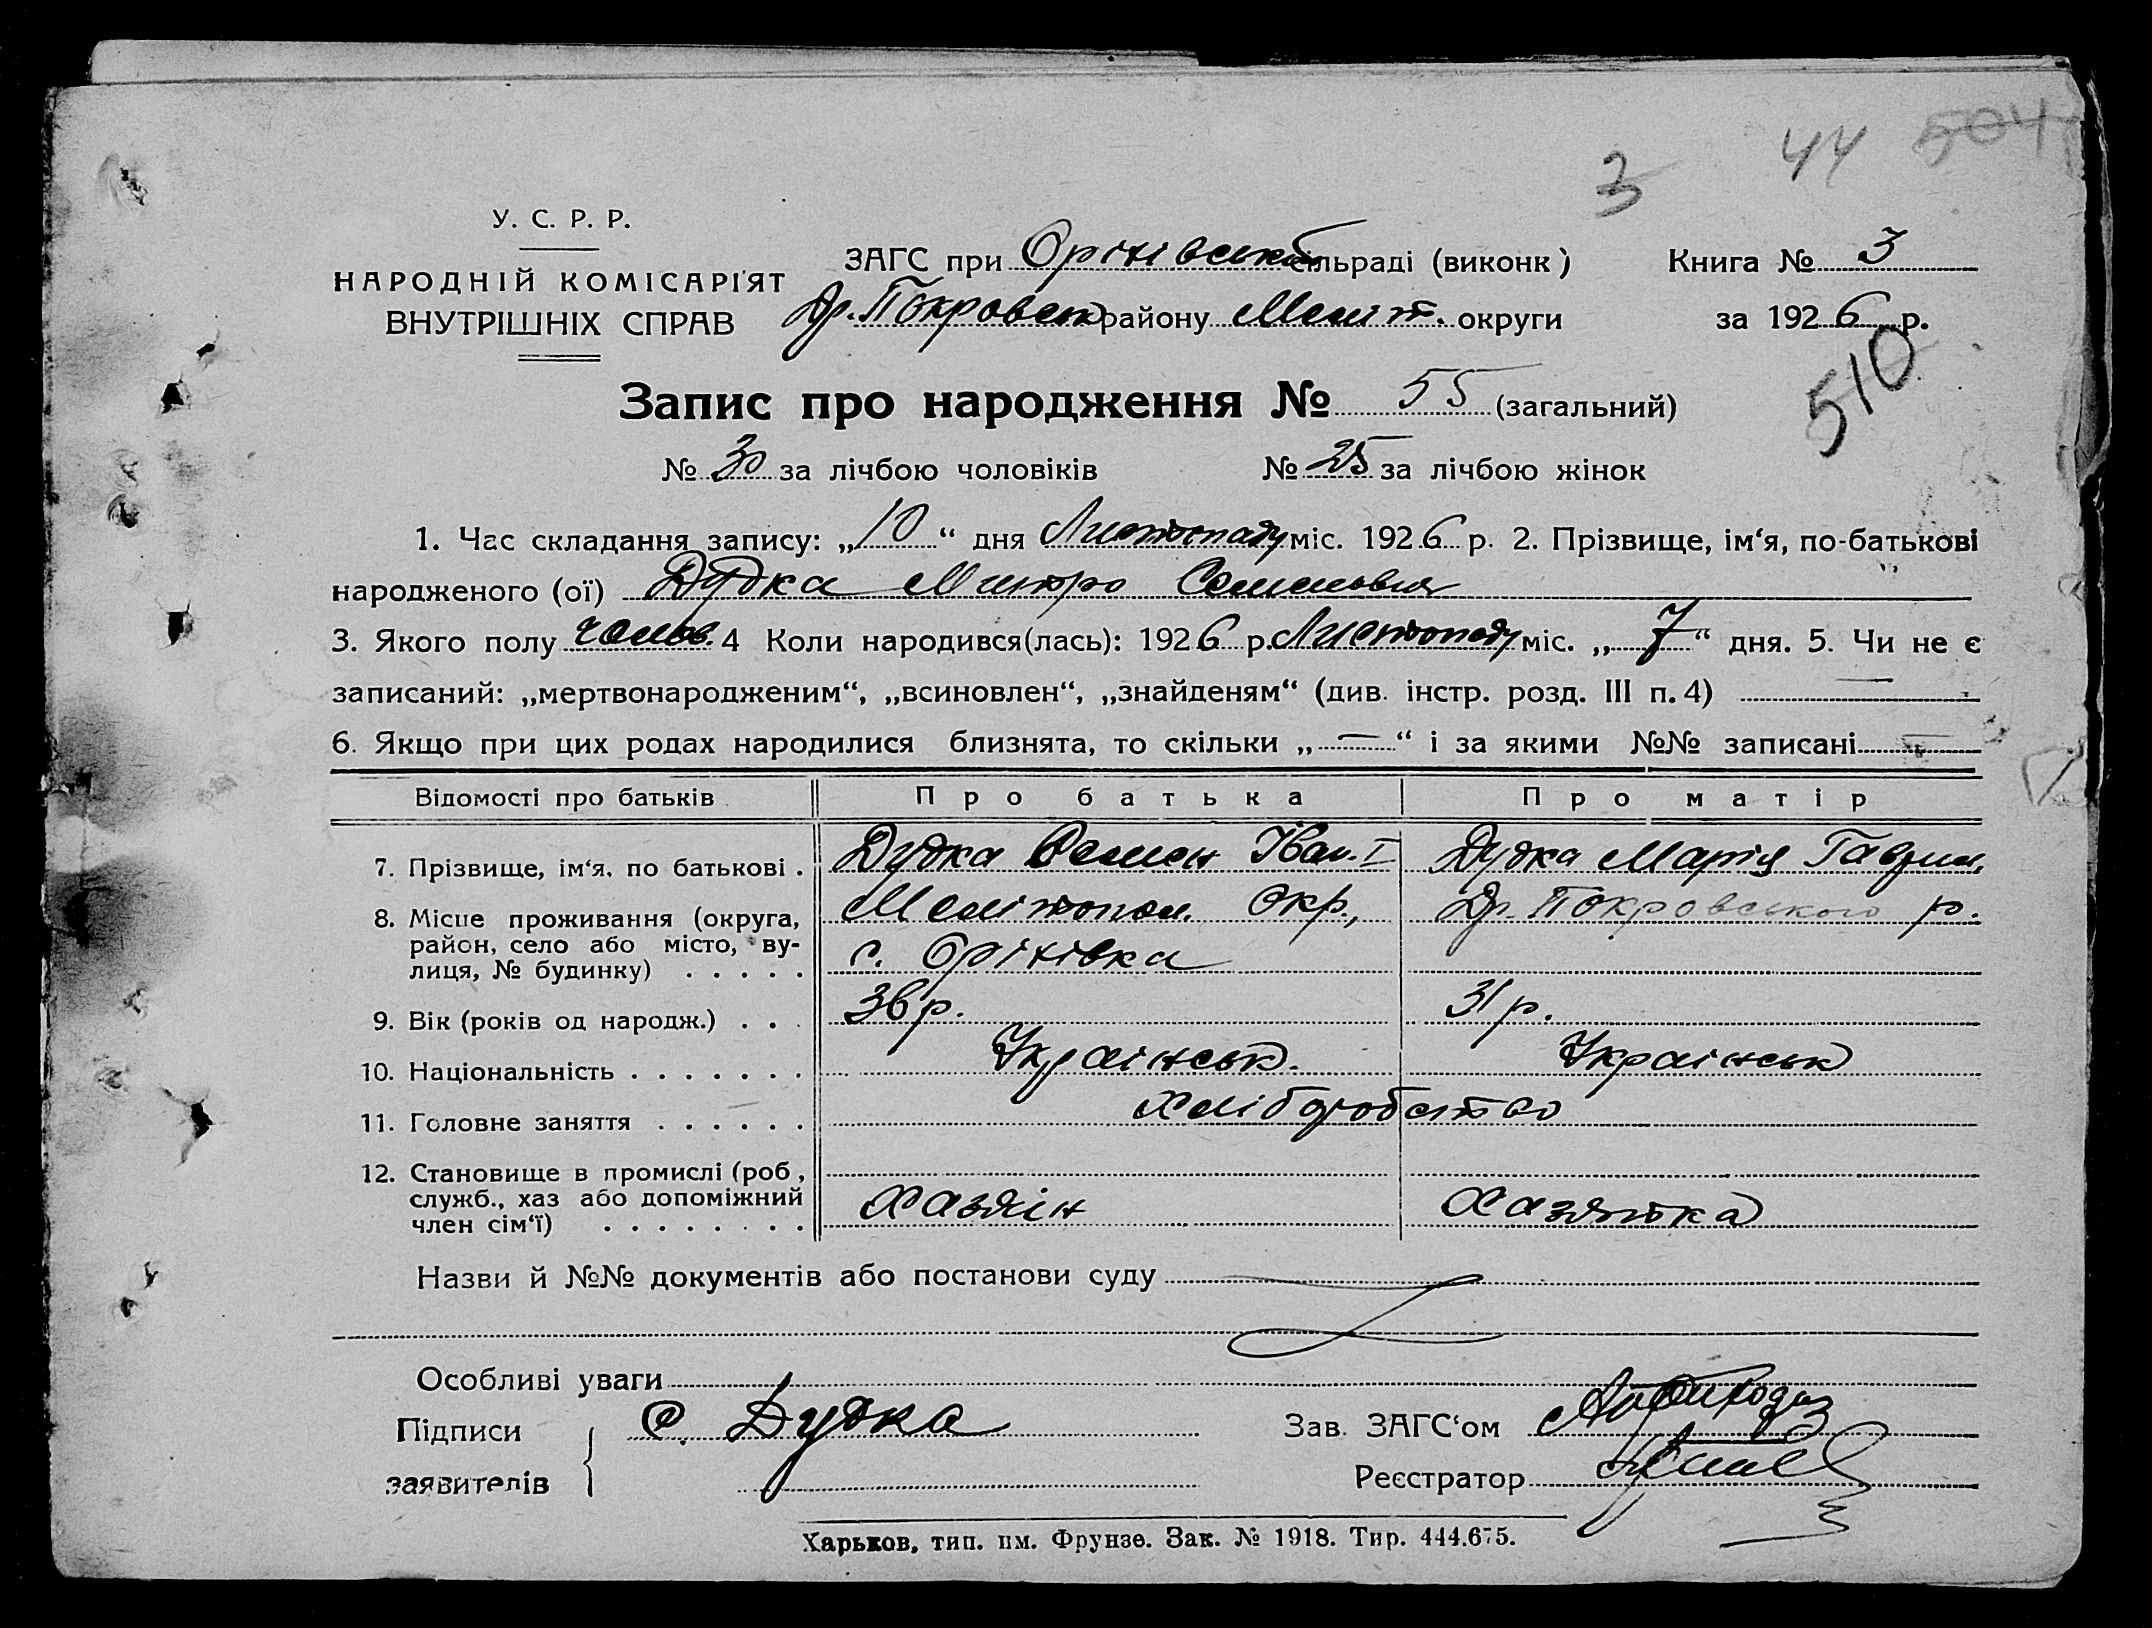 3 44 504
У. С. Р. Р.
НАРОДНІЙ КОМІСАРІЯТ
ВНУТРІШНІХ СПРАВ
ЗАГС при Орінівській сільраді (виконк) Книга № 3
Др. Покровськ району Меліт. округи за 1926 р.
510
Запис про народження № 55 (загальний)
№ 30 за лічбою чоловіків № 25 за лічбою жінок
1. Час складання запису: „10“ дня Листопаду міс. 1926 р. 2. Прізвище, ім‘я, по-батькові
народженого (ої) Дудка Митро Семенович
3. Якого полу чолов. 4 Коли народився(лась): 1926 р. Листопаду міс. „7“ дня. 5. Чи не є
записаний: „мертвонародженим“, „всиновлен“, „знайденям“ (див. інстр. розд. III п. 4) —
6. Якщо при цих родах народилися близнята, то скільки „—“ і за якими №№ записані —
Відомості про батьків Про батька Про матір
7. Прізвище, ім‘я, по батькові . Дудка Семен Іван. І Дудка Марія Гаврил.
8. Місце проживання (округа, Мелітопол. окр., Др. Покровського р.
район, село або місто, ву-
лиця, № будинку) . . . . . с. Орінівка
9. Вік (років од народж.) . . . 36 р. 31 р.
10. Національність . . . . . . . Українськ. Українськ
11. Головне заняття . . . . . . Хліборобство
12. Становище в промислі (роб,
служб., хаз або допоміжний
член сім‘ї) . . . . . . . . Хазяїн Хазяйка
Назви й №№ документів або постанови суду
Особливі уваги
Підписи С. Дудка Зав. ЗАГС‘ом
заявителів Реєстратор
Харьков, тип. им. Фрунзе. Зак. № 1918. Тир. 444.675.